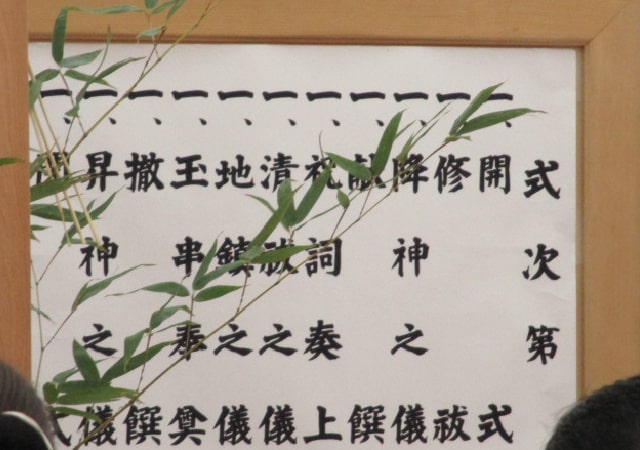 式次第
一、開式
一、修祓
一、降神之儀
一、献饌
一、祝詞奏上
一、清祓之儀
一、地鎮之儀
一、玉串奉奠
一、撤饌
一、昇神之儀
一、閉式